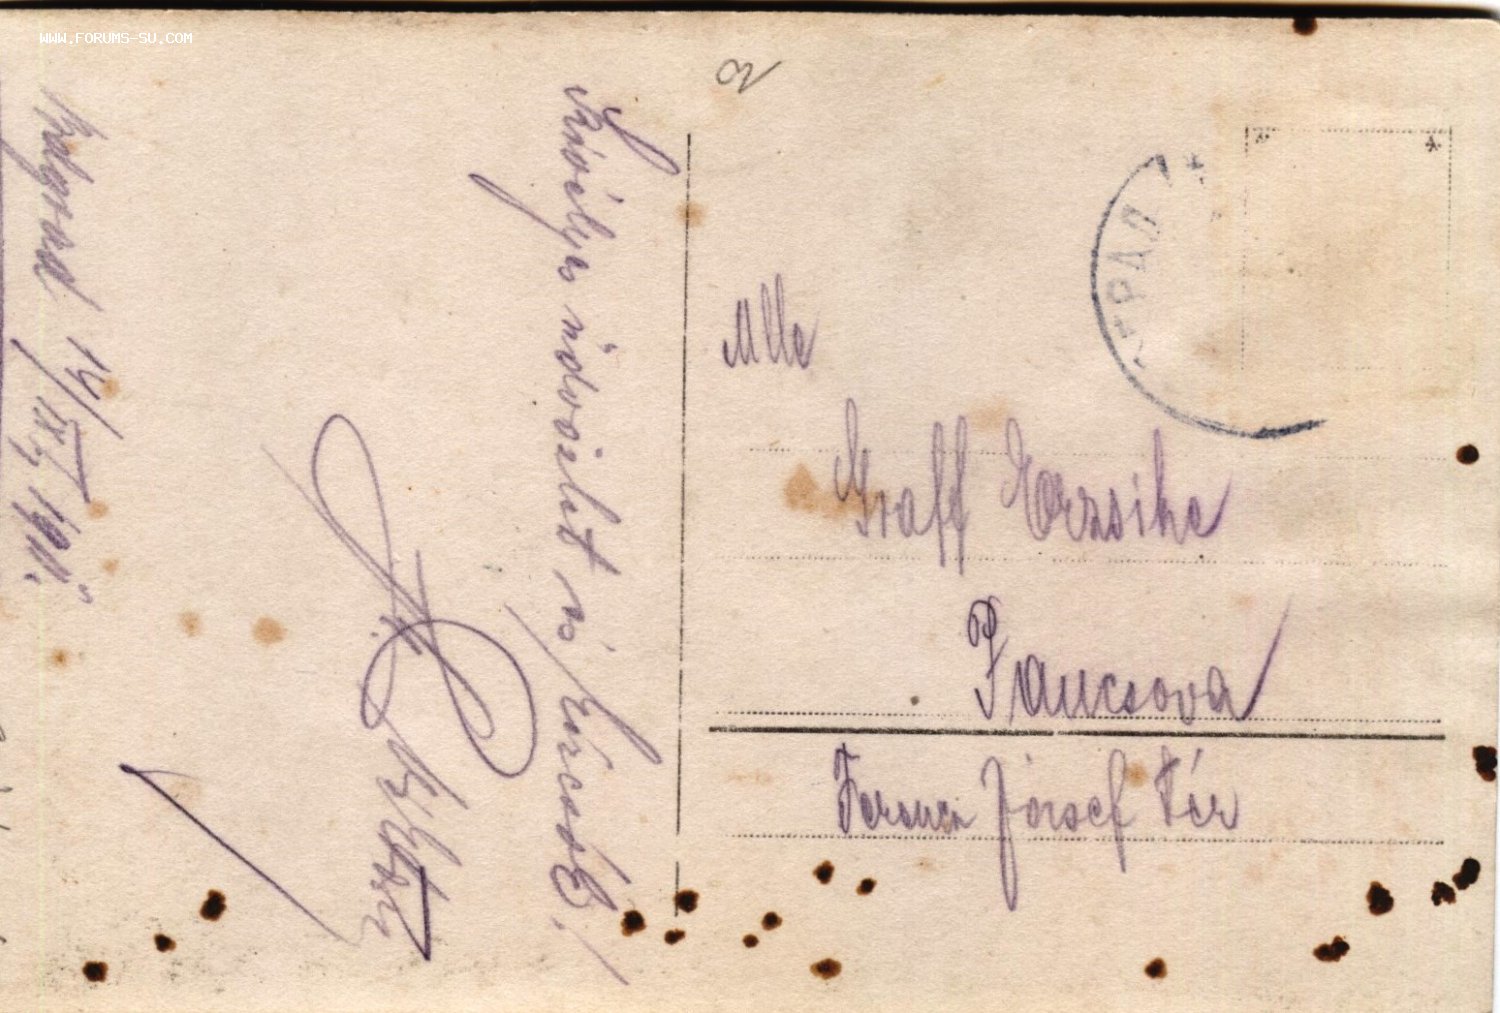 WWW.FORUMS-SU.COM
Belgrad 14/IX 1911.
Szívélyes üdvözlet és kézcsók!
Mlle
Graff Erzsike
Pancsova
Ferencz József tér
ГРАД